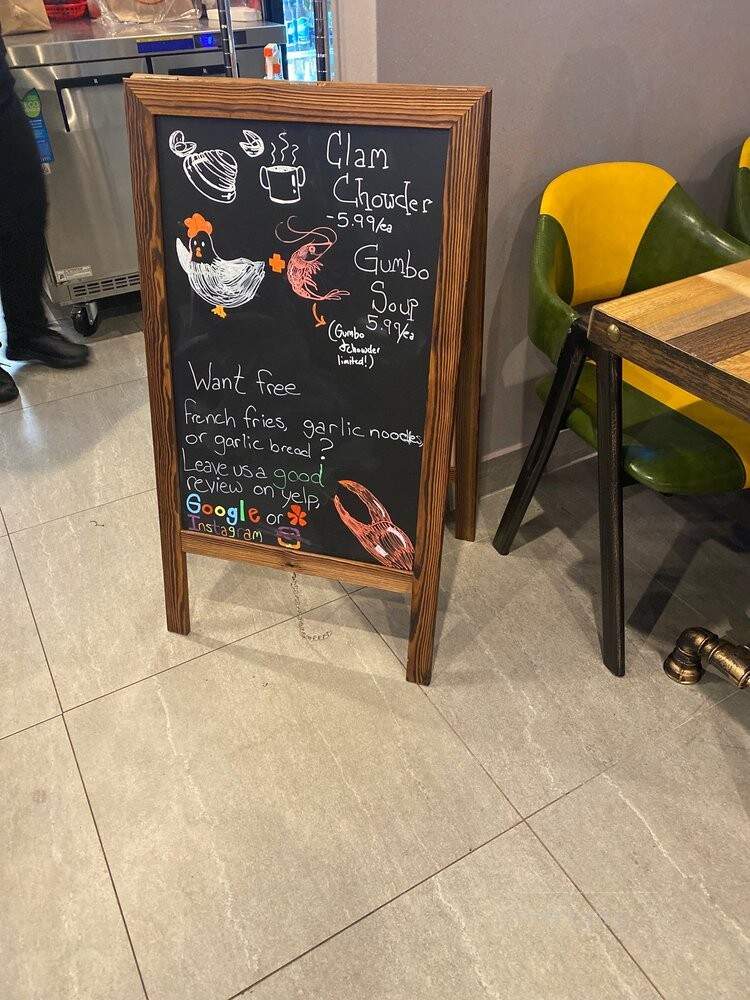 Clam
Chowder
-5.99/ea
Gumbo
Soup
5.99/ea
(Gumbo
& chowder
limited!)
Want free
French fries, garlic noodles,
or garlic bread?
Leave us a good
review on yelp,
Google or
Instagram